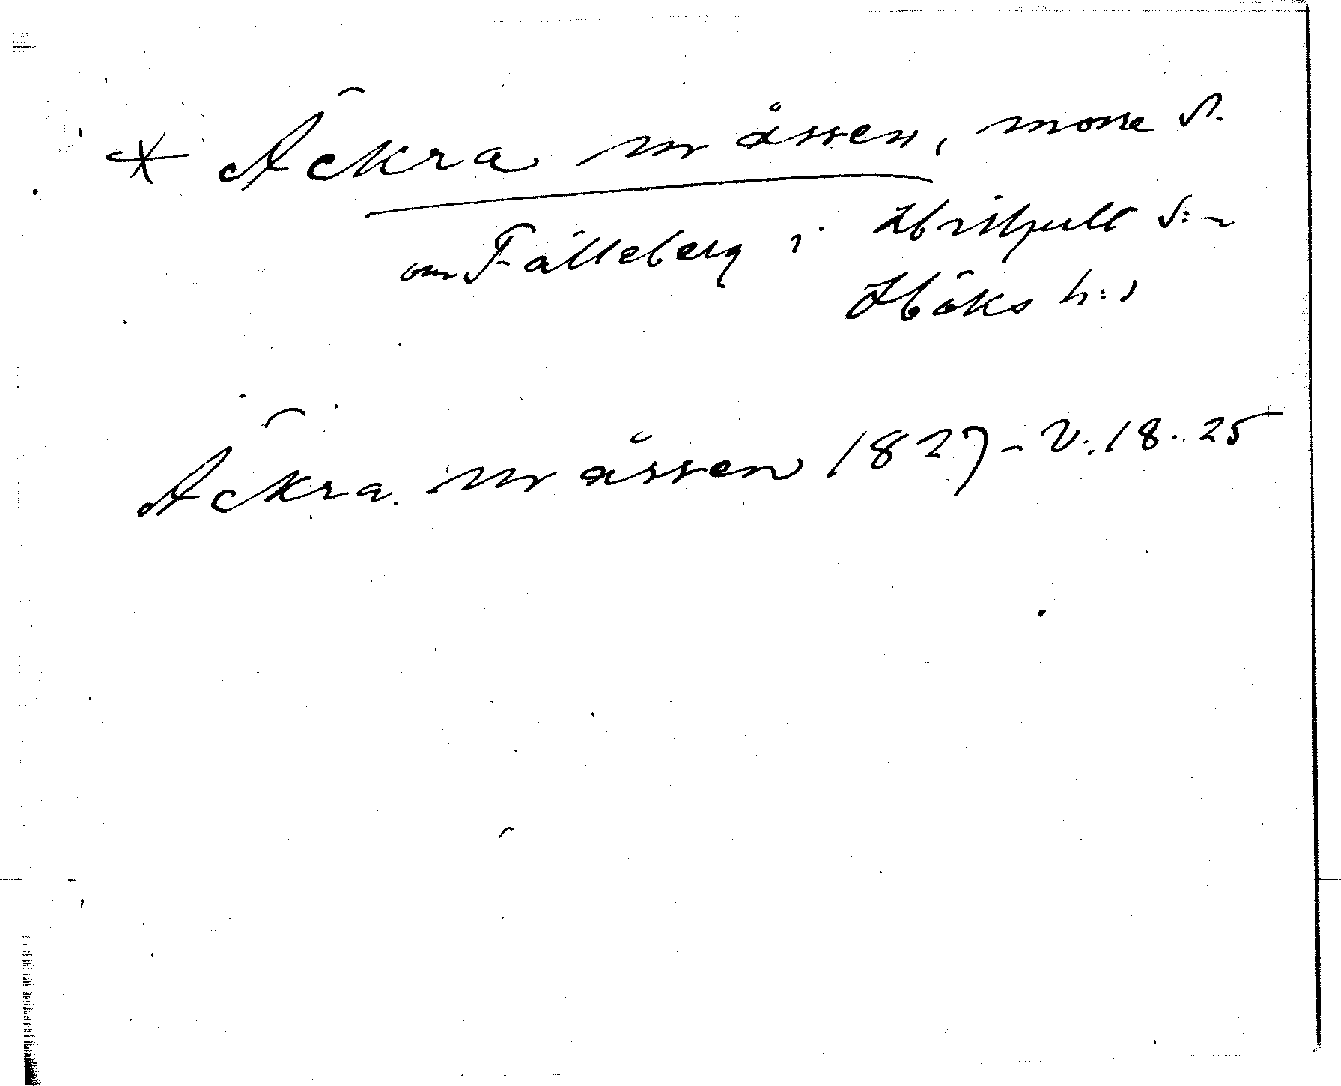 * Åckra måssen, mosse S.
om Fälleberg i Hishult s:n
Höks h:d
Åckra måssen 1827 - V. 18. 25